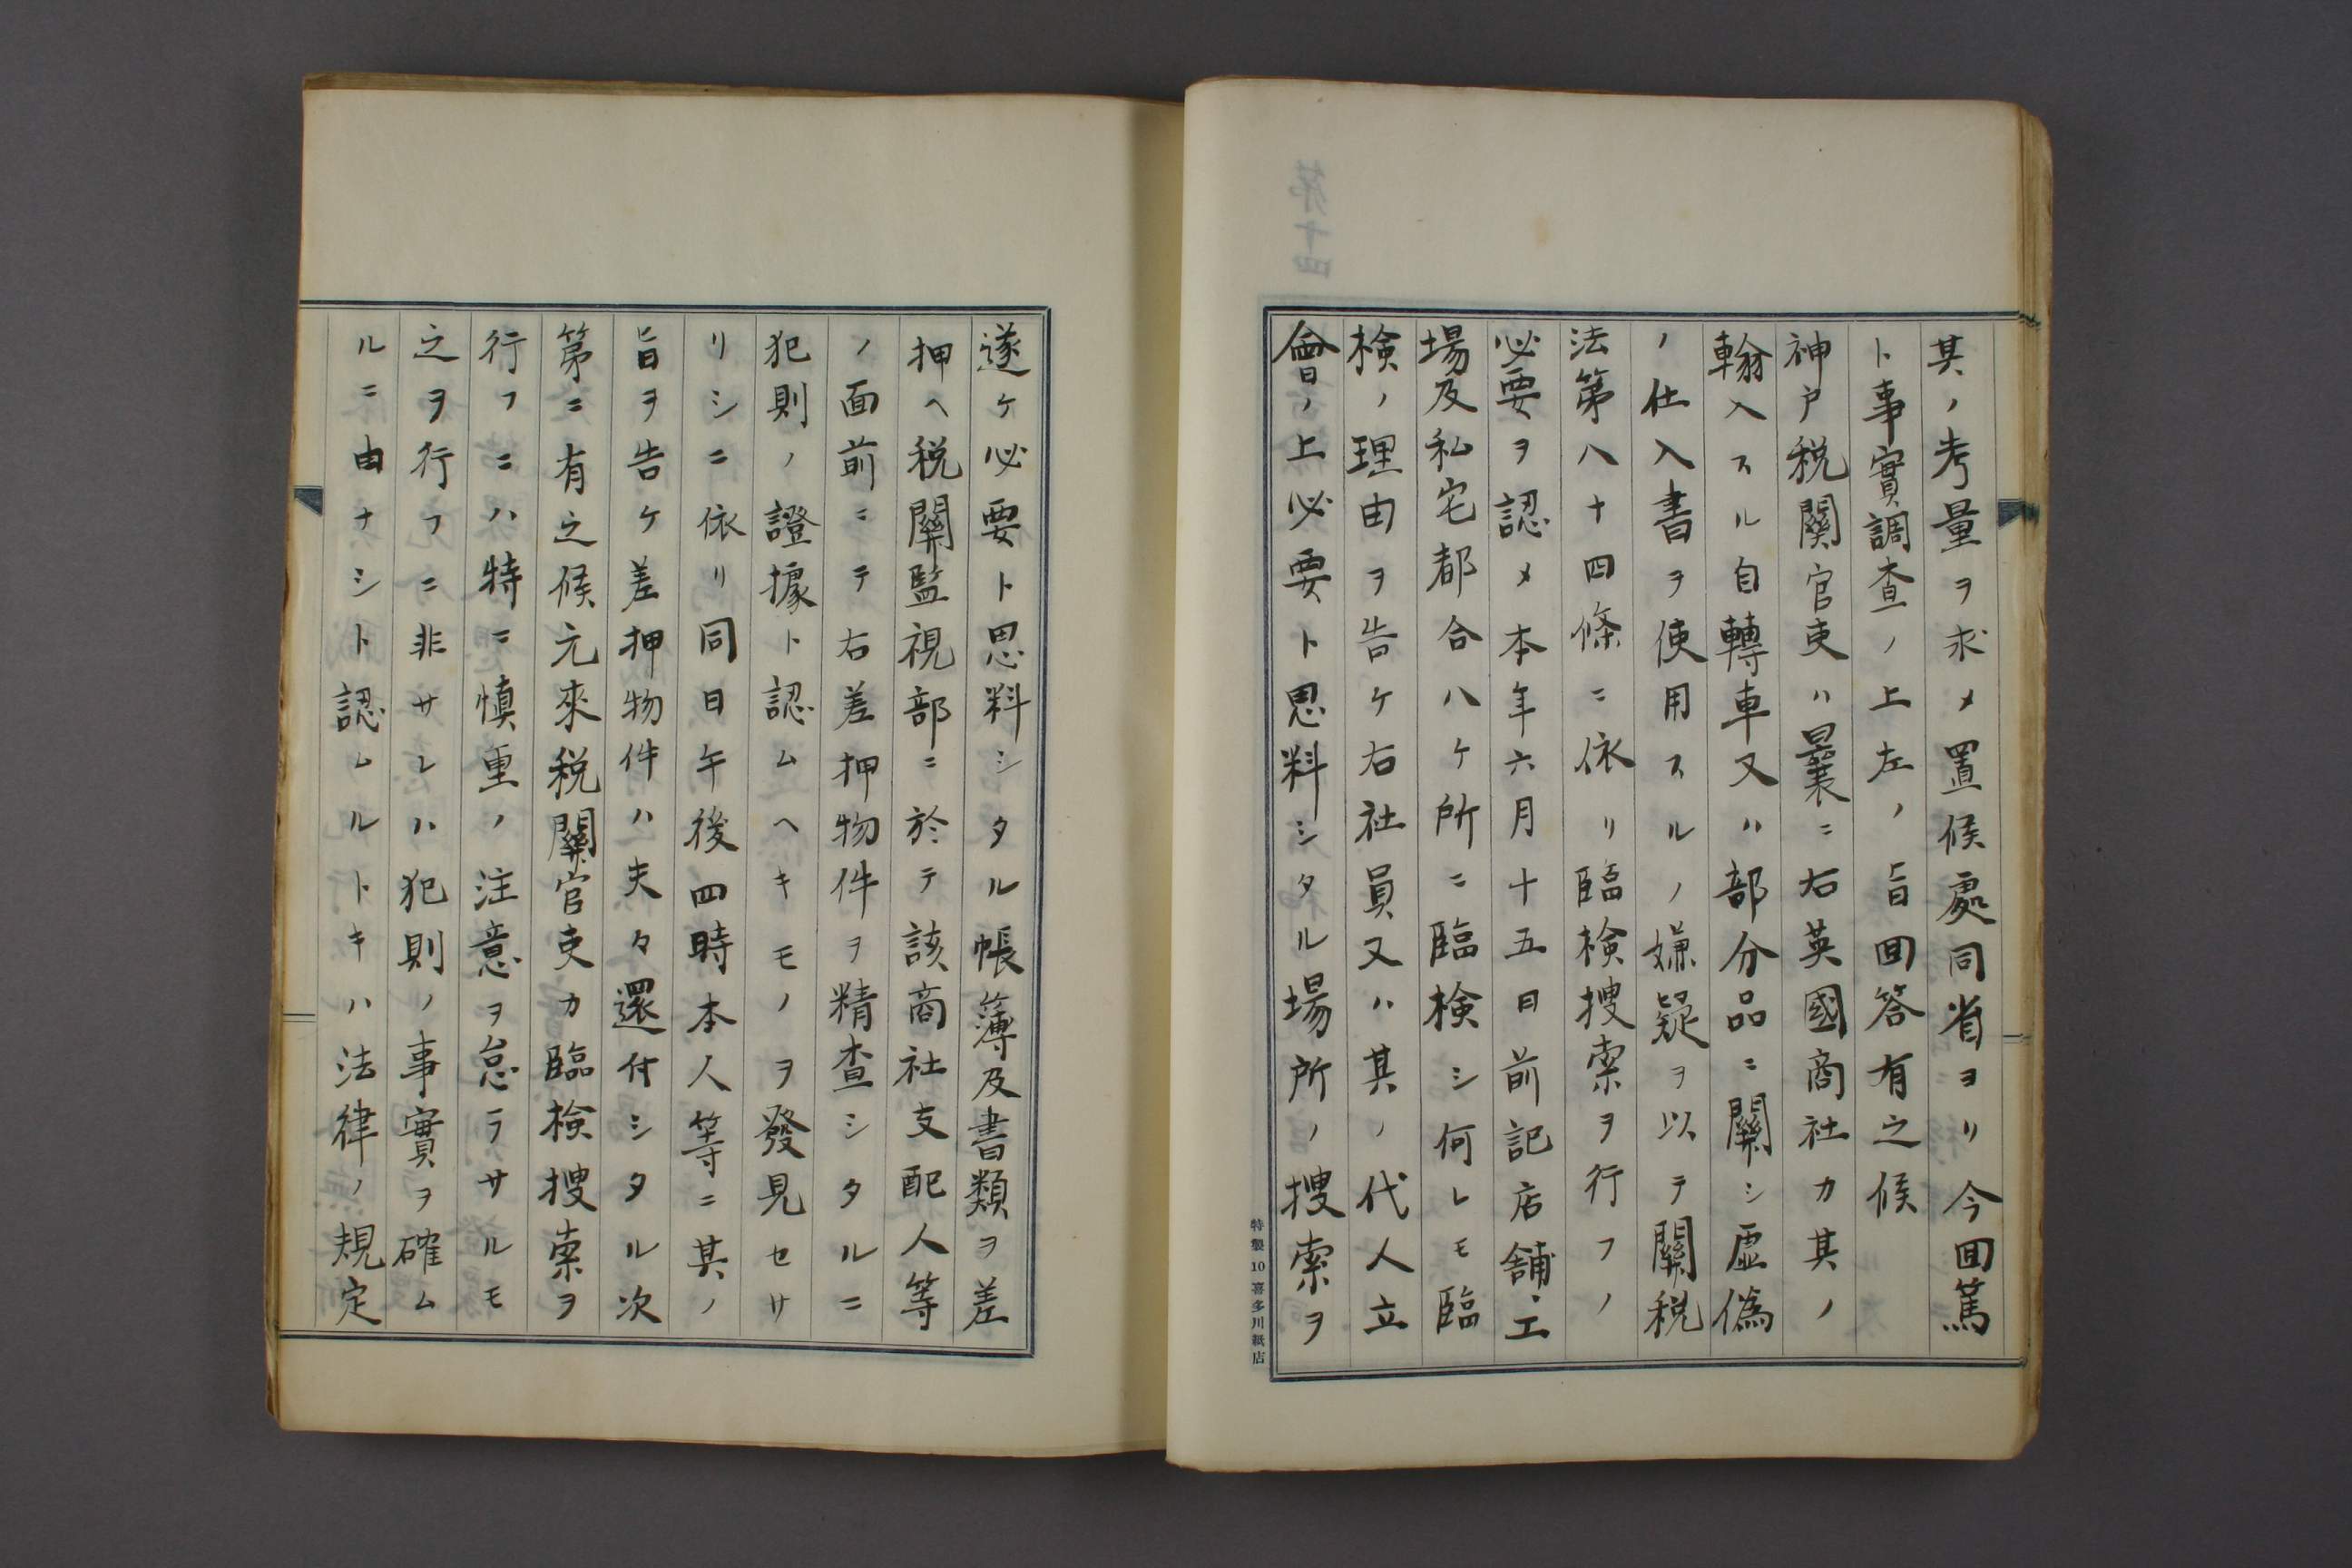 其ノ考量ヲ求メ置候處同省ヨリ今囬篤
ト事實調査ノ上左ノ旨囬答有之候
神戸税關官吏ハ曩ニ右英國商社カ其ノ
輸入スル自轉車又ハ部分品ニ關シ虚偽
ノ仕入書ヲ使用スルノ嫌疑ヲ以テ關税
法第八十四條ニ依リ臨検捜索ヲ行フノ
必要ヲ認メ本年六月十五日前記店舗、工
場及私宅都合八ケ所ニ臨検シ何レモ臨
検ノ理由ヲ告ケ右社員又ハ其ノ代人立
會ノ上必要ト思料シタル場所ノ捜索ヲ
特製10喜多川紙店
遂ケ必要ト思料シタル帳簿及書類ヲ差
押ヘ税關監視部ニ於テ該商社支配人等
ノ面前ニテ右差押物件ヲ精査シタルニ
犯則ノ證據ト認ムヘキモノヲ發見セサ
リシニ依リ同日午後四時本人等ニ其ノ
旨ヲ告ケ差押物件ハ夫々還付シタル次
第ニ有之候元來税關官吏カ臨検捜索ヲ
行フニハ特ニ慎重ノ注意ヲ怠ラサルモ
之ヲ行フニ非サレハ犯則ノ事實ヲ確ム
ルニ由ナシト認ムルトキハ法律ノ規定